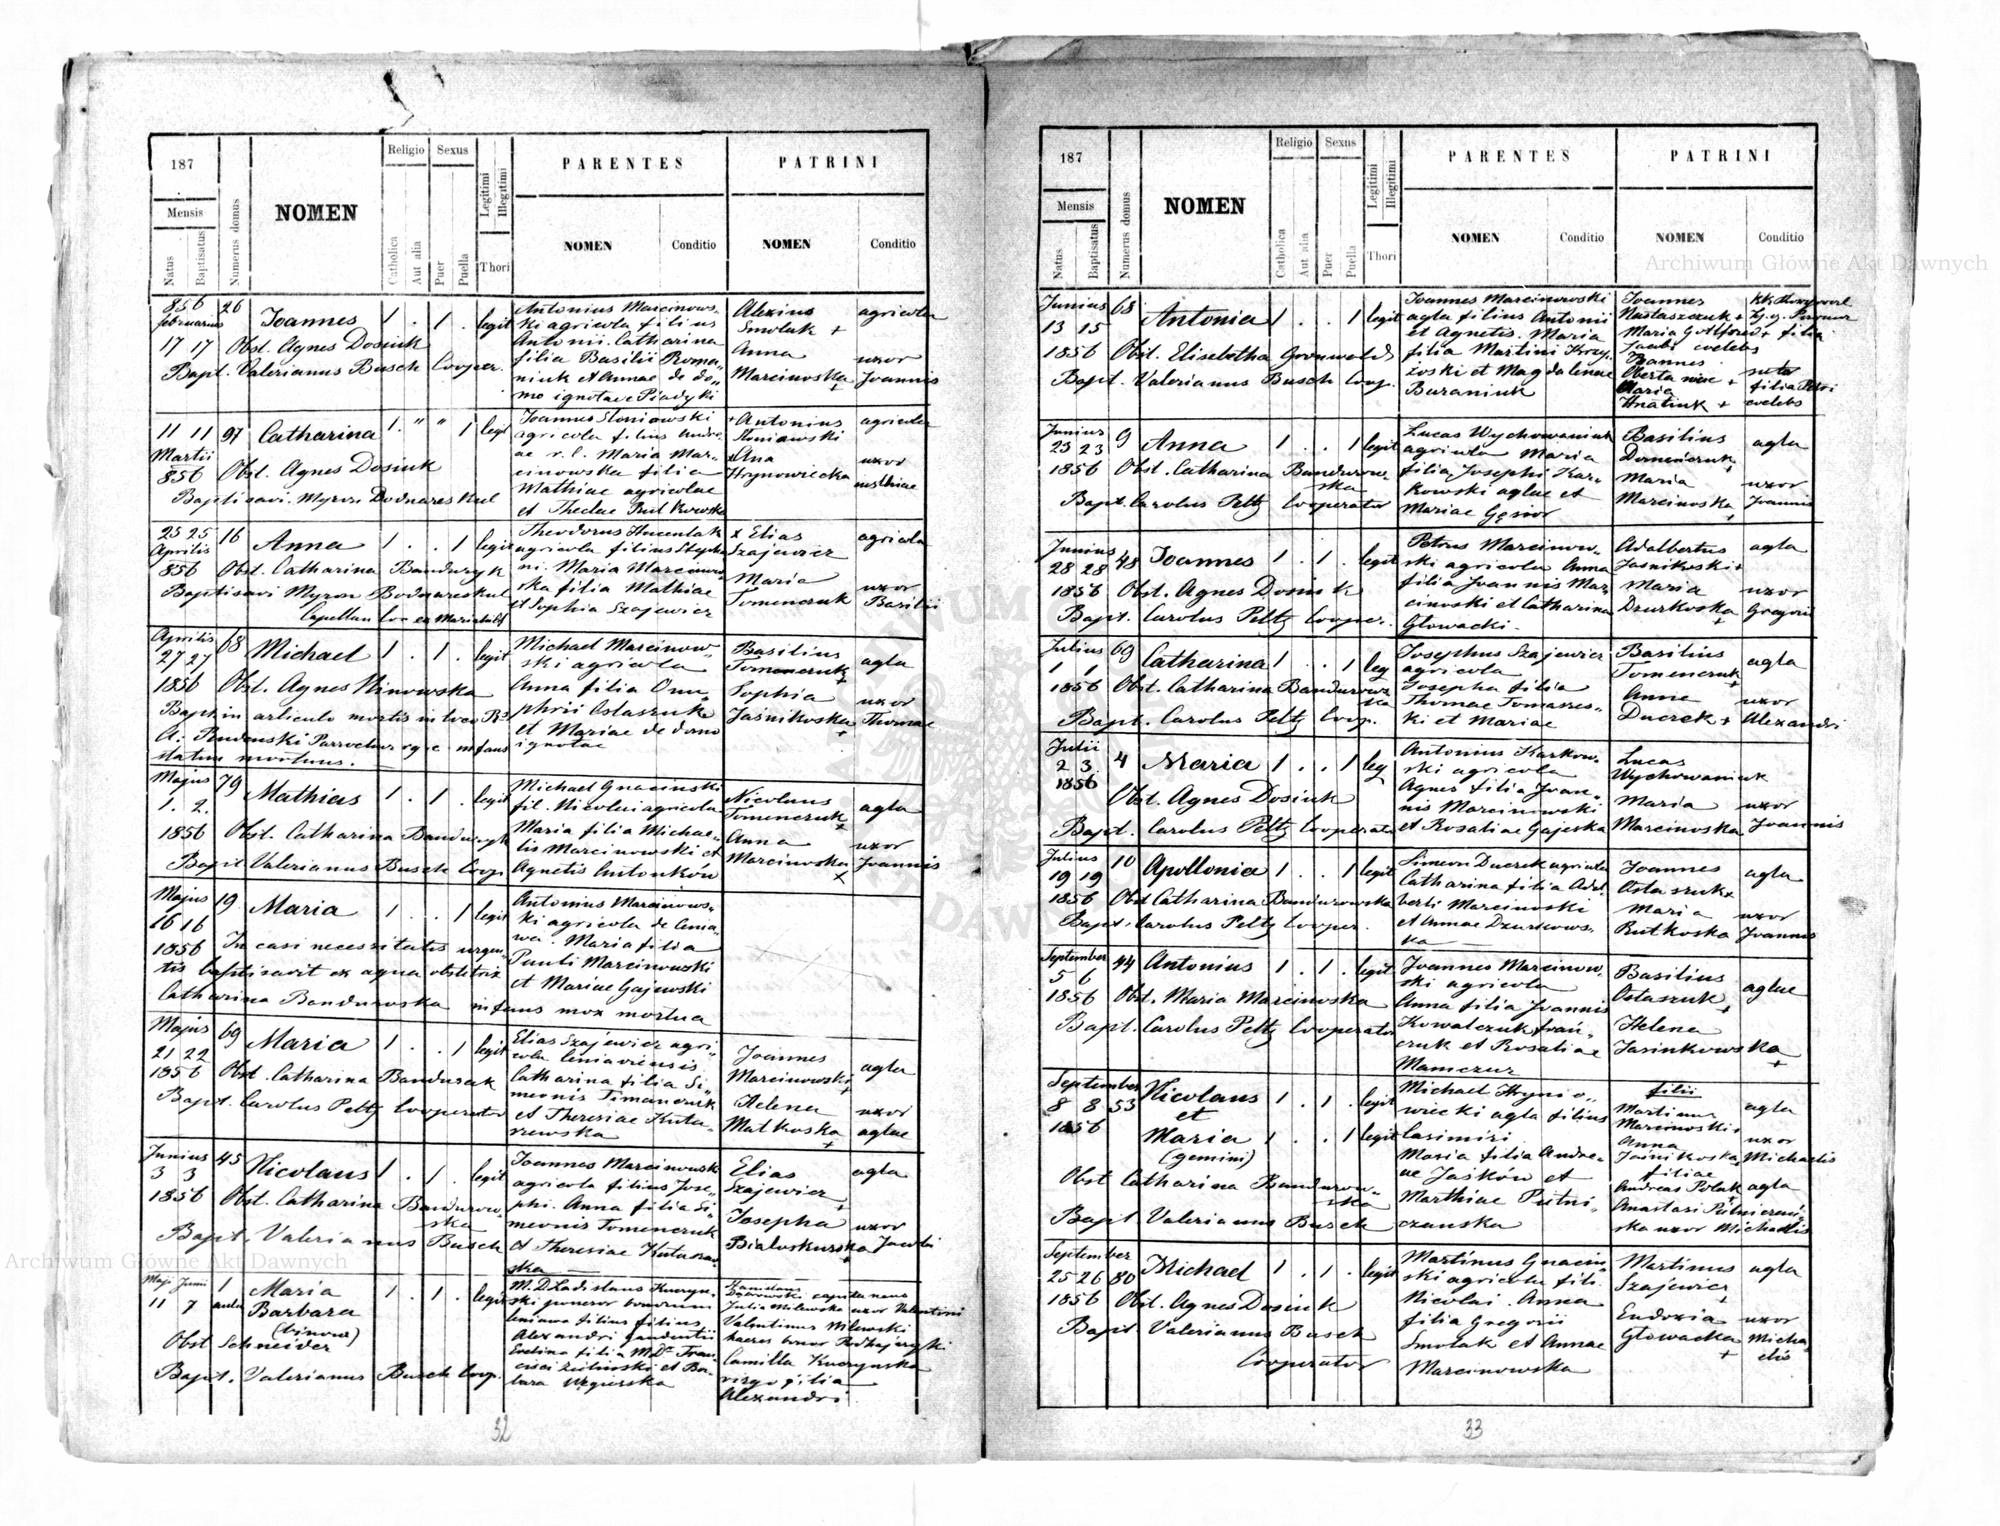 187
Mensis
Natus
Baptisatus
Numerus domus
NOMEN
Religio
Catholica
Aut alia
Sexus
Puer
Puella
Legitimi
Illegitimi
Thori
PARENTES
NOMEN
Conditio
PATRINI
NOMEN
Conditio
856 26 Joannes 1 . 1 . legit
februarius
17 17 Obst. Agnes Dosiuk
Bapt. Valerianus Busch Cooper.
Antonius Marcinows-
ki agricola filius
Antonii. Catharina
filia Basilii Roma-
niuk et Annae de do-
mo ignotae Piadyki
Alexius agricola
Smoluk +
Anna uxor
Marcinoska + Joannis
11 11 97 Catharina 1 . " " 1 legit
Martii
856 Obst. Agnes Dosiuk
Baptisavi. Myron Bodnareskul
Joannes Stoniowski
agricola filius Andre-
ae r. l. Maria Mar-
cinowska filia
Mathiae agricolae
et Theclae
+ Antonius agricola
Stoniowski
Ana uxor
Hrynowiecka
25 25 16 Anna 1 . . 1 legit
Aprilis
856 Obst. Catharina Banduryk
Baptisavi Myron Bodnareskul
Theodorus
agricola filius Stepha
ni. Maria Marcinow-
ska filia Mathiae
et Sophia Szajewicz
x Elias agricola
Szajewicz
Maria uxor
Tomenczuk Basilii
Aprilis 68 Michael 1 . 1 . legit
27 27
1856 Obst. Agnes Ninowska
Bapt. in articulo mortis in loco
statim mortuus.
Michael Marcinow-
ski agricola
Anna filia Onu-
phrii Ostaszuk
et Mariae de domo
ignotae
Basilius agla
Tomenczuk +
Sophia uxor
Jaśnikoska + Thomae
Majus 79 Mathias 1 . 1 . legit
1. 2.
1856 Obst. Catharina Banduryk
Bapt Valerianus Busch Coop.
Michael Gnacinski
fil. Nicolai agricola
Maria filia Michae-
lis Marcinowski et
Agnetis Antonków
Nicolaus agla
Tomenczuk +
Anna uxor
Marcinoska x Joannis
Majus 19 Maria 1 . . 1 legit
16 16
1856 In casi necessitatis urgen-
tis baptisavit ex aqua obstetrix
Catharina Banduroska infans mox mortua
Antonius Marcinows-
ki agricola de Cenia-
wa. Maria filia
Pauli Marcinowski
et Mariae Gajewski
Majus 69 Maria 1 . . 1 legit
21 22
1856 Obst. Catharina Bandurak
Bapt. Carolus Peltz Cooperator
Elias Szajewicz agri-
cola ceniaviensis
Catharina filia Si-
meonis Timanczuk
et Theresiae Kuta-
rzewska
Joannes agla
Marcinowski +
Helena uxor
Matkoska + aglae
Junius 45 Nicolaus 1 . 1 . legit
3 3
1856 Obst. Catharina Bandurow-
ska
Bapt. Valerianus Busch
Joannes Marcinowski
agricola filius Jose-
phi. Anna filia Si-
meonis Tomenczuk
et Theresiae
ska
Elias agla
Szajewicz +
Josepha uxor
Bialoskurska + Jacobi
Maji Junii 1 Maria 1 . 1 . legit
11 7 aula Barbara
(binom)
Obst Schneider
Bapt. Valerianus Busch Coop.
M. D. Ladislaus Kuczyn-
ski
Ceniawa filius filius
Alexandri Gaudentii
Evelina filia M. D. Fran-
cisci Zielinski et Bar-
bara Węgierska
Julia Milewska uxor Valentini
Valentinus Milewski
Camilla Kuczynska
virgo filia
Alexandri
32
187
Mensis
Natus
Baptisatus
Numerus domus
NOMEN
Religio
Catholica
Aut alia
Sexus
Puer
Puella
Legitimi
Illegitimi
Thori
PARENTES
NOMEN
Conditio
PATRINI
NOMEN
Conditio
Junius 68 Antonia 1 . . 1 legit
13 15
1856 Obst. Elisebetha Grunwald
Bapt. Valerianus Busch Coop.
Joannes Marcinowski
agla filius Antonii
et Agnetis. Maria
filia Martini Krzy-
żoski et Magdalenae
Buraniuk
Joannes
Nastaszczuk +
Maria + filia
Jacobi coelebs
Joannes
Maria filia Petri
Hnatiuk + coelebs
Junius 9 Anna 1 . . 1 legit
23 23
1856 Obst. Catharina Bandurow-
ska
Bapt. Carolus Peltz Cooperator
Lucas Wychowaniuk
agricola Maria
filia Josephi Kar-
kowski aglae et
Mariae Gęsior
Basilius agla
Maria uxor
Marcinoska Joannis
Junius 48 Joannes 1 . 1 . legit
28 28
1856 Obst. Agnes Dosiuk
Bapt. Carolus Peltz Cooper.
Petrus Marcinow-
ski agricola Anna
filia Joannis Mar-
cinoski et Catharina
Głowacki.
Adalbertus agla
Jaśnikoski +
Maria uxor
Dzurkoska + Gregorii
Julius 69 Catharina 1 . . 1 leg
1 1
1856 Obst. Catharina Bandurows-
ka
Bapt. Carolus Peltz Coop.
Josephus Szajewicz
agricola
Josepha filia
Thomae Tomaszes-
ki et Mariae
Basilius agla
Tomenczuk +
Anna uxor
Duczek + Alexandri
Julii 4 Maria 1 . . 1 leg
2 3.
1856
Obst. Agnes Dosiuk
Bapt. Carolus Peltz Cooperator
Antonius Karkow-
ski agricola
Agnes filia Joan-
nis Marcinowski
et Rosaliae Gajeska
Lucas
Wychowaniuk
Maria uxor
Marcinoska Joannis
Julius 10 Apollonia 1 . . 1 legit
19 19
1856 Obst Catharina Bandurowska
Bapt. Carolus Peltz Cooper.
Simeon Duczek agricola
Catharina filia Adal-
berti Marcinoski
et Annae Dzurkows-
ka
Joannes agla
Ostaszuk x
Maria uxor
Rutkoska Joannis
September 44 Antonius 1 . 1 . legit
5 6
1856 Obst. Maria Marcinoska
Bapt. Carolus Peltz Cooperator
Joannes Marcinow-
ski agricola
Anna filia Joannis
Kowalczuk Frań-
czuk et Rosaliae
Mamczur
Basilius aglae
Ostaszuk +
Helena
Jasinkowska +
September Nicolaus 1 . 1 . legit
8 8 53 et
1856 Maria 1 . . 1 legit
(gemini)
Obst Catharina Bandurow-
ska
Bapt Valerianus Busch
Michael Hrynio-
wiecki agla filius
Casimiri
Maria filia Andre-
ae Jasków et
Marthiae Putni-
czanska
filii
Martinus agla
Marcinoski +
Anna uxor
Jaśnikoska Michaelis
filiae
Andreas Polak agla
ska uxor Michaelis
September
25 26 80 Michael 1 . 1 . legit
1856 Obst. Agnes Dosiuk
Bapt. Valerianus Busch
Cooperator
Martinus Gnacin-
ski agricola fili.
Nicolai. Anna
filia Gregorii
Smolak et Annae
Marcinowska
Martinus agla
Szajewicz +
Eudoxia uxor
Głowacka + Micha-
elis
33
Archiwum Główne Akt Dawnych
Archiwum Główne Akt Dawnych